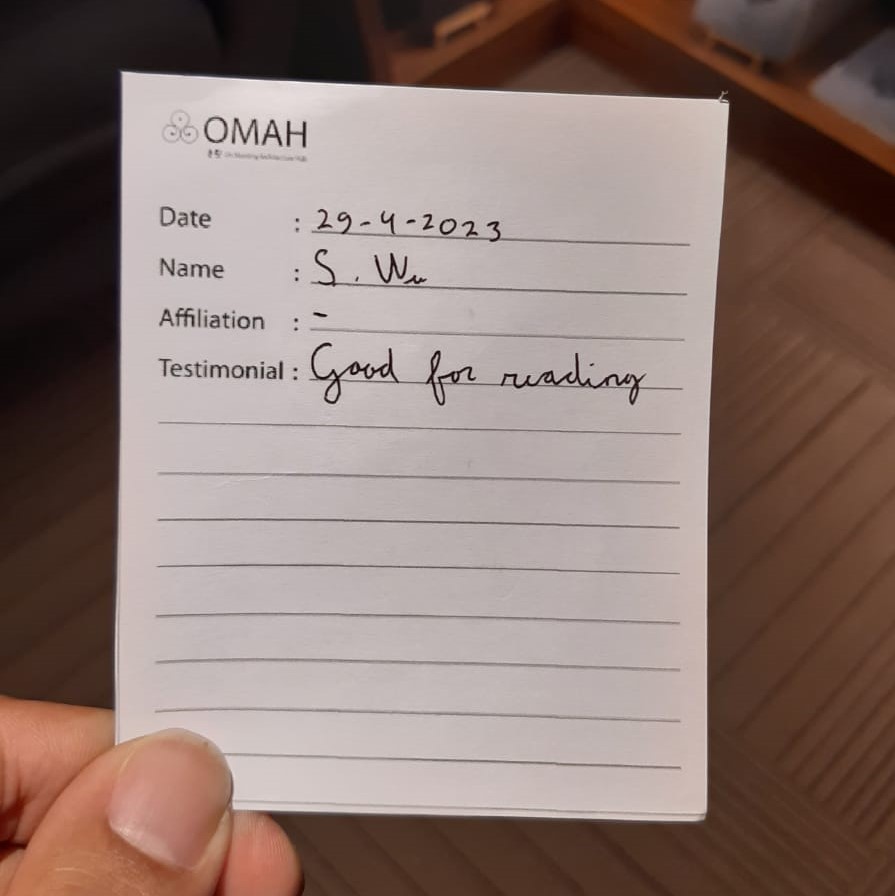 OMAH
Date : 29-4-2023
Name : S. Wu
Affiliation : -
Testimonial : Good for reading